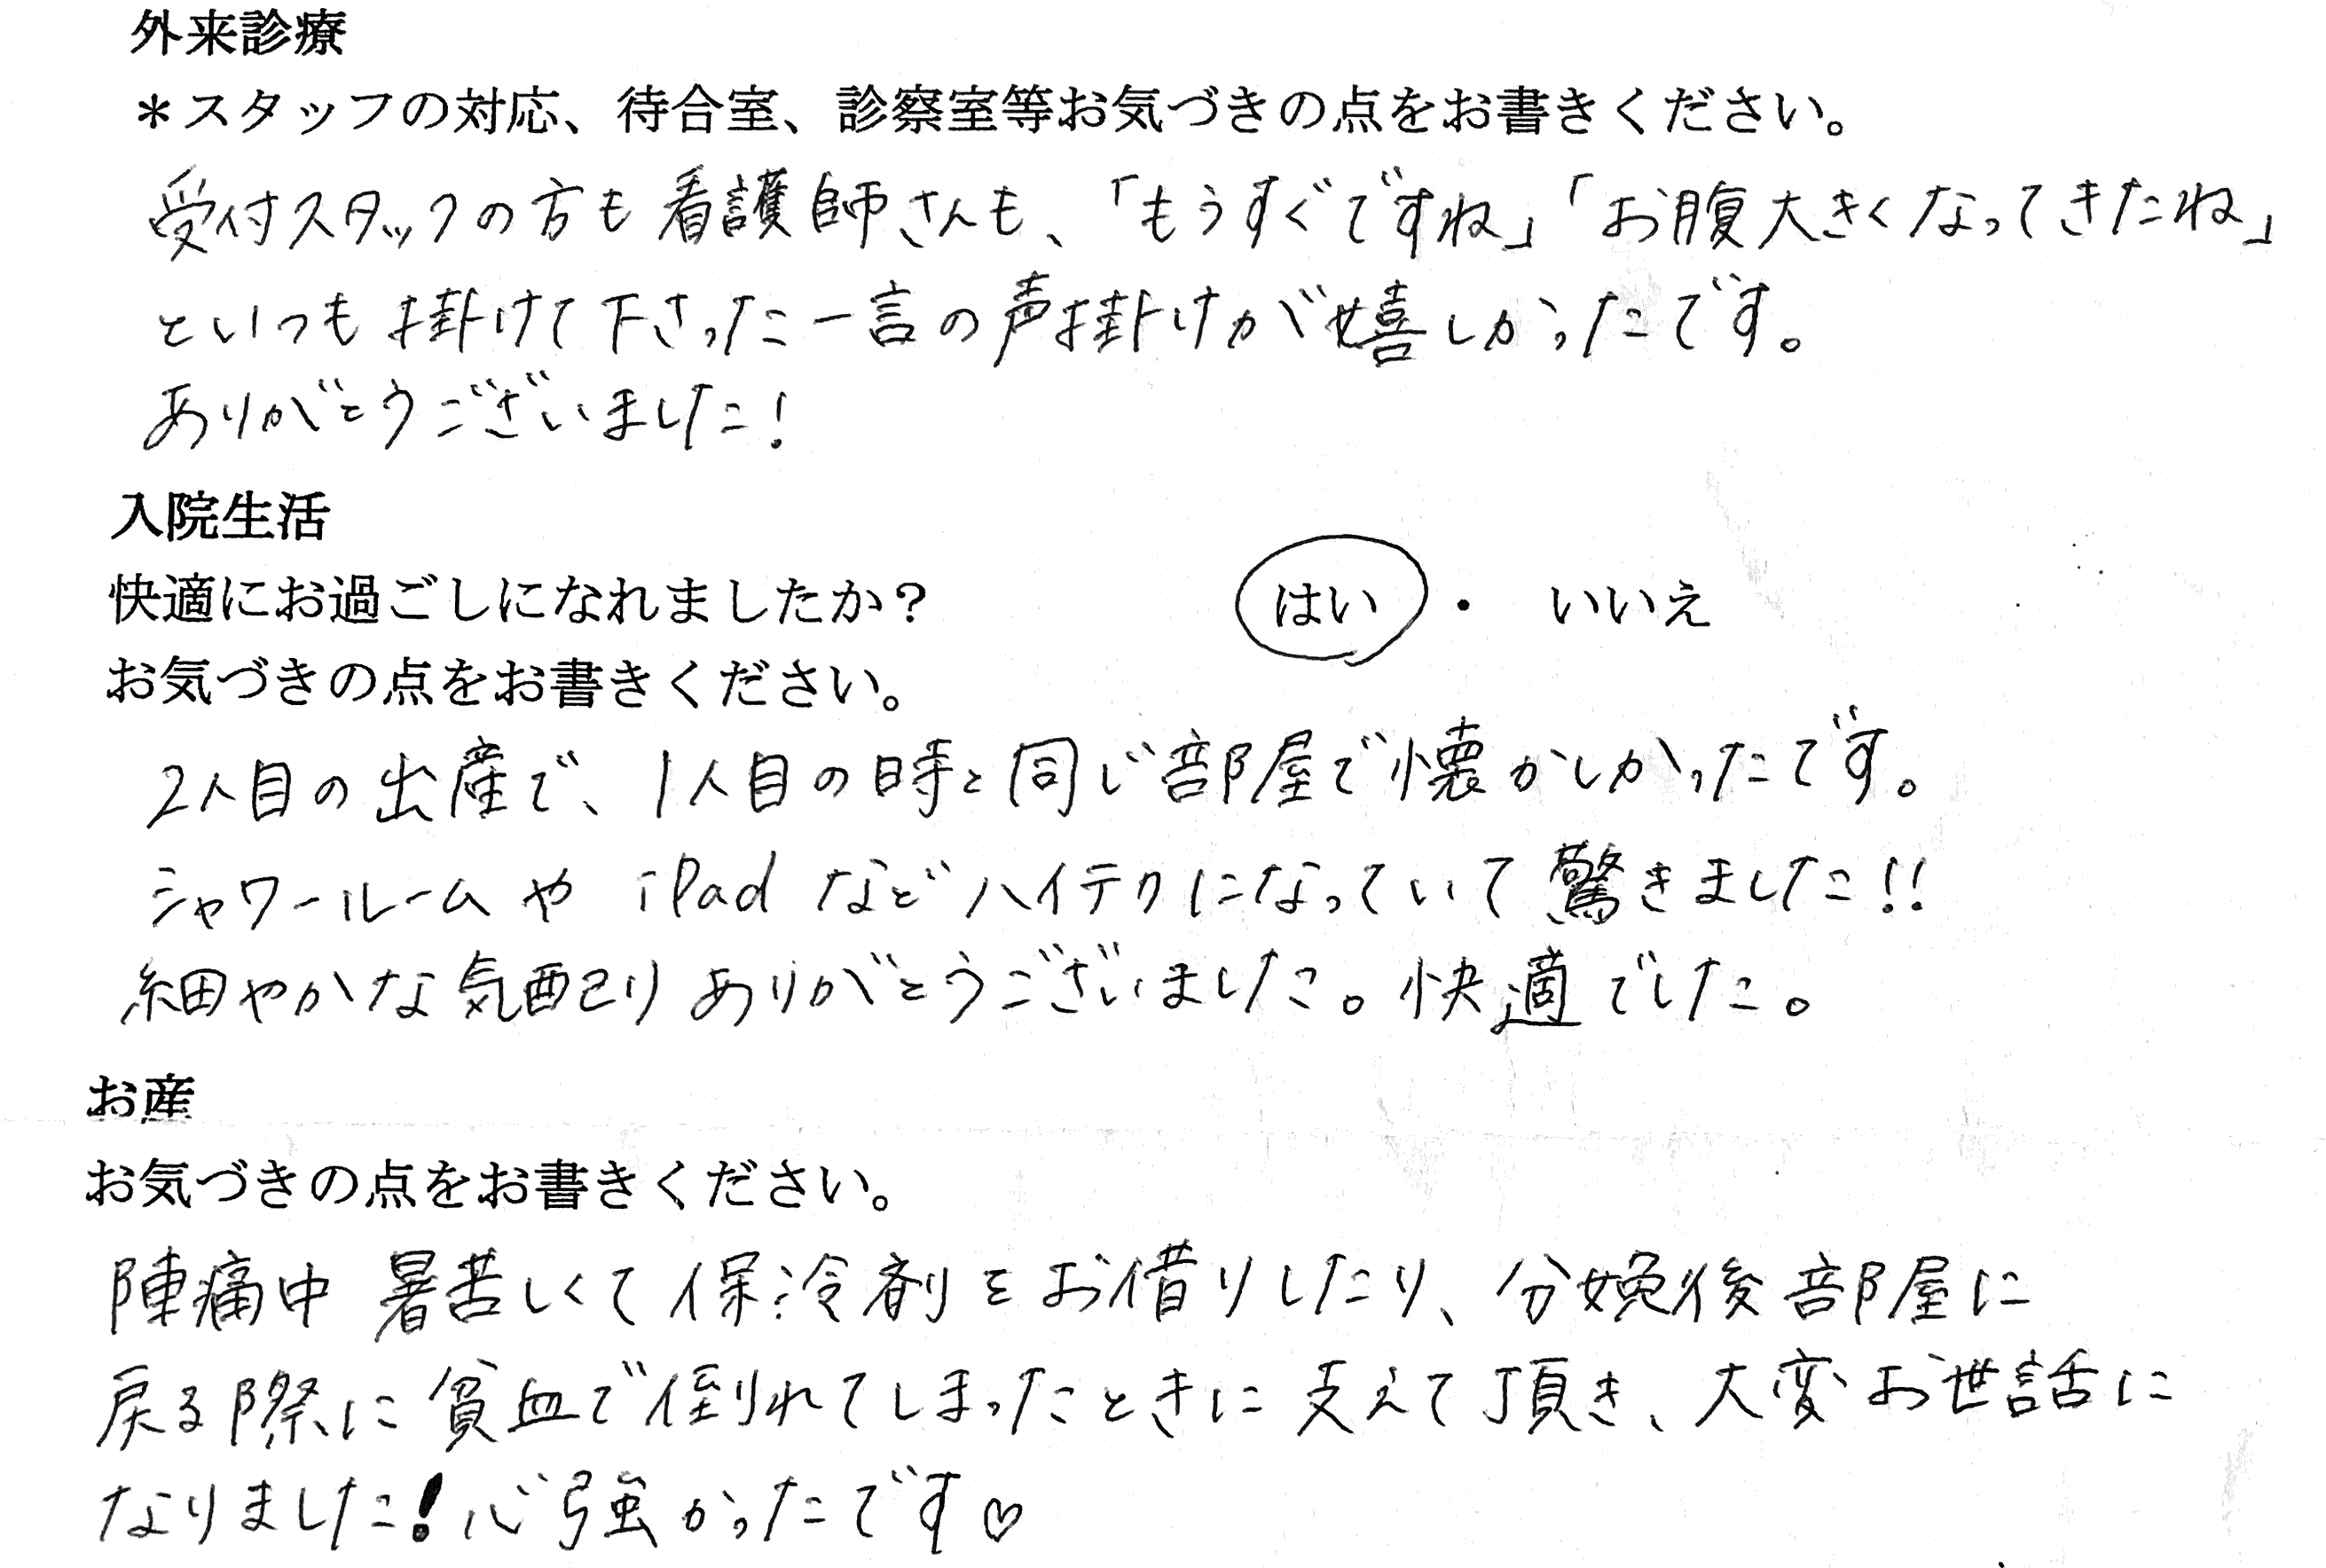 外来診療
＊スタッフの対応、待合室、診察室等お気づきの点をお書きください。
受付スタッフの方も看護師さんも、「もうすぐですね」「お腹大きくなってきたね」
といつも掛けて下さった一言の声掛けが嬉しかったです。
ありがとうございました！
入院生活
快適にお過ごしになれましたか？ はい ・ いいえ
お気づきの点をお書きください。
2人目の出産で、1人目の時と同じ部屋で懐かしかったです。
シャワールームや iPad などハイテクになっていて驚きました!!
細やかな気配りありがとうございました。快適でした。
お産
お気づきの点をお書きください。
陣痛中 暑苦しくて保冷剤をお借りしたり、分娩後部屋に
戻る際に貧血で倒れてしまったときに支えて頂き、大変お世話に
なりました！心強かったです♡